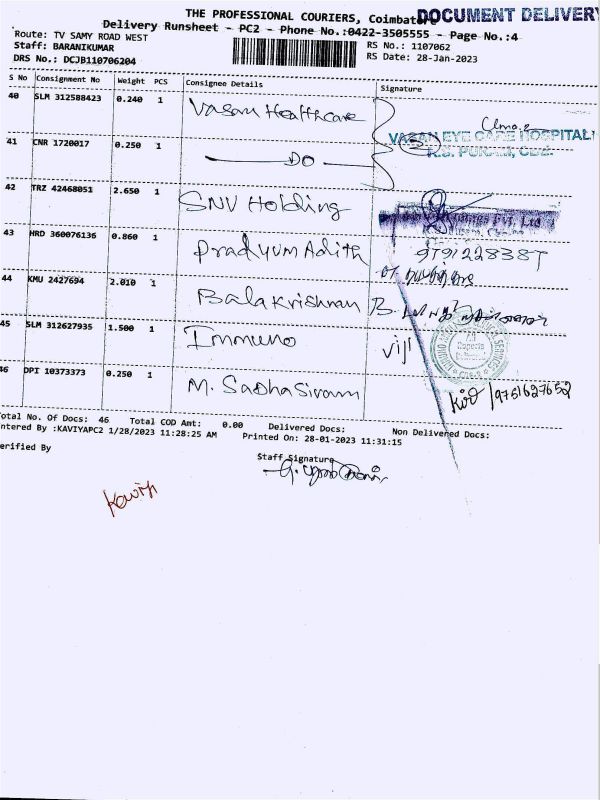 THE PROFESSIONAL COURIERS, Coimbatore
DOCUMENT DELIVERY
Delivery Runsheet - PC2 - Phone No.:0422-3505555 - Page No.:4
Route: TV SAMY ROAD WEST
RS No.: 1107062
Staff: BARANIKUMAR
RS Date: 28-Jan-2023
DRS No.: DCJB110706204
S No Consignment No Weight PCS Consignee Details Signature
40 SLM 312588423 0.240 1 Vasan Healthcare
VASAN EYE CARE HOSPITAL
R.S. PURAM, CBE.
41 CNR 1720017 0.250 1 DO
42 TRZ 42468051 2.650 1 SNV Holding
43 HRD 360076136 0.860 1 Pradyum Adith
44 KMU 2427694 2.010 1 Balakrishnan B.
45 SLM 312627935 1.500 1 Immuno viji
46 DPI 10373373 0.250 1 M. Sadhasivam
9751627652
Total No. Of Docs: 46 Total COD Amt: 0.00 Delivered Docs: Non Delivered Docs:
Entered By :KAVIYAPC2 1/28/2023 11:28:25 AM Printed On: 28-01-2023 11:31:15
Verified By
Staff Signature
Kaviya